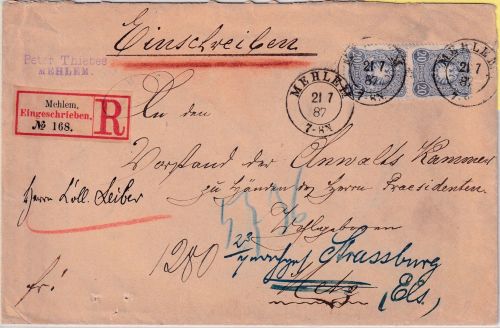 Einschreiben
Peter Thietes
MEHLEM.
MEHLEM
21 7
87
7-8N
MEHLEM
21 7
87
7-8N
Mehlem.
Eingeschrieben.
№ 168.
R
An den
Vorstand der Anwalts Kammer
zu Händen des Herrn Praesidenten
Herrn Coll. Leiber
Wohlgeboren
1280
Strassburg
fr!
Metz
(Els.)